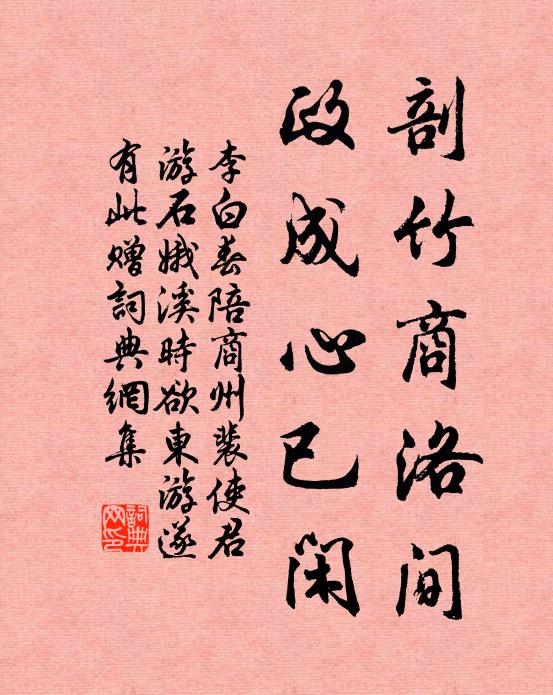 剖竹商洛间
政成心已闲
李白春陪商州裴使君
游石娥溪時欲東游遂
有此赠詞典網集
詞典网印